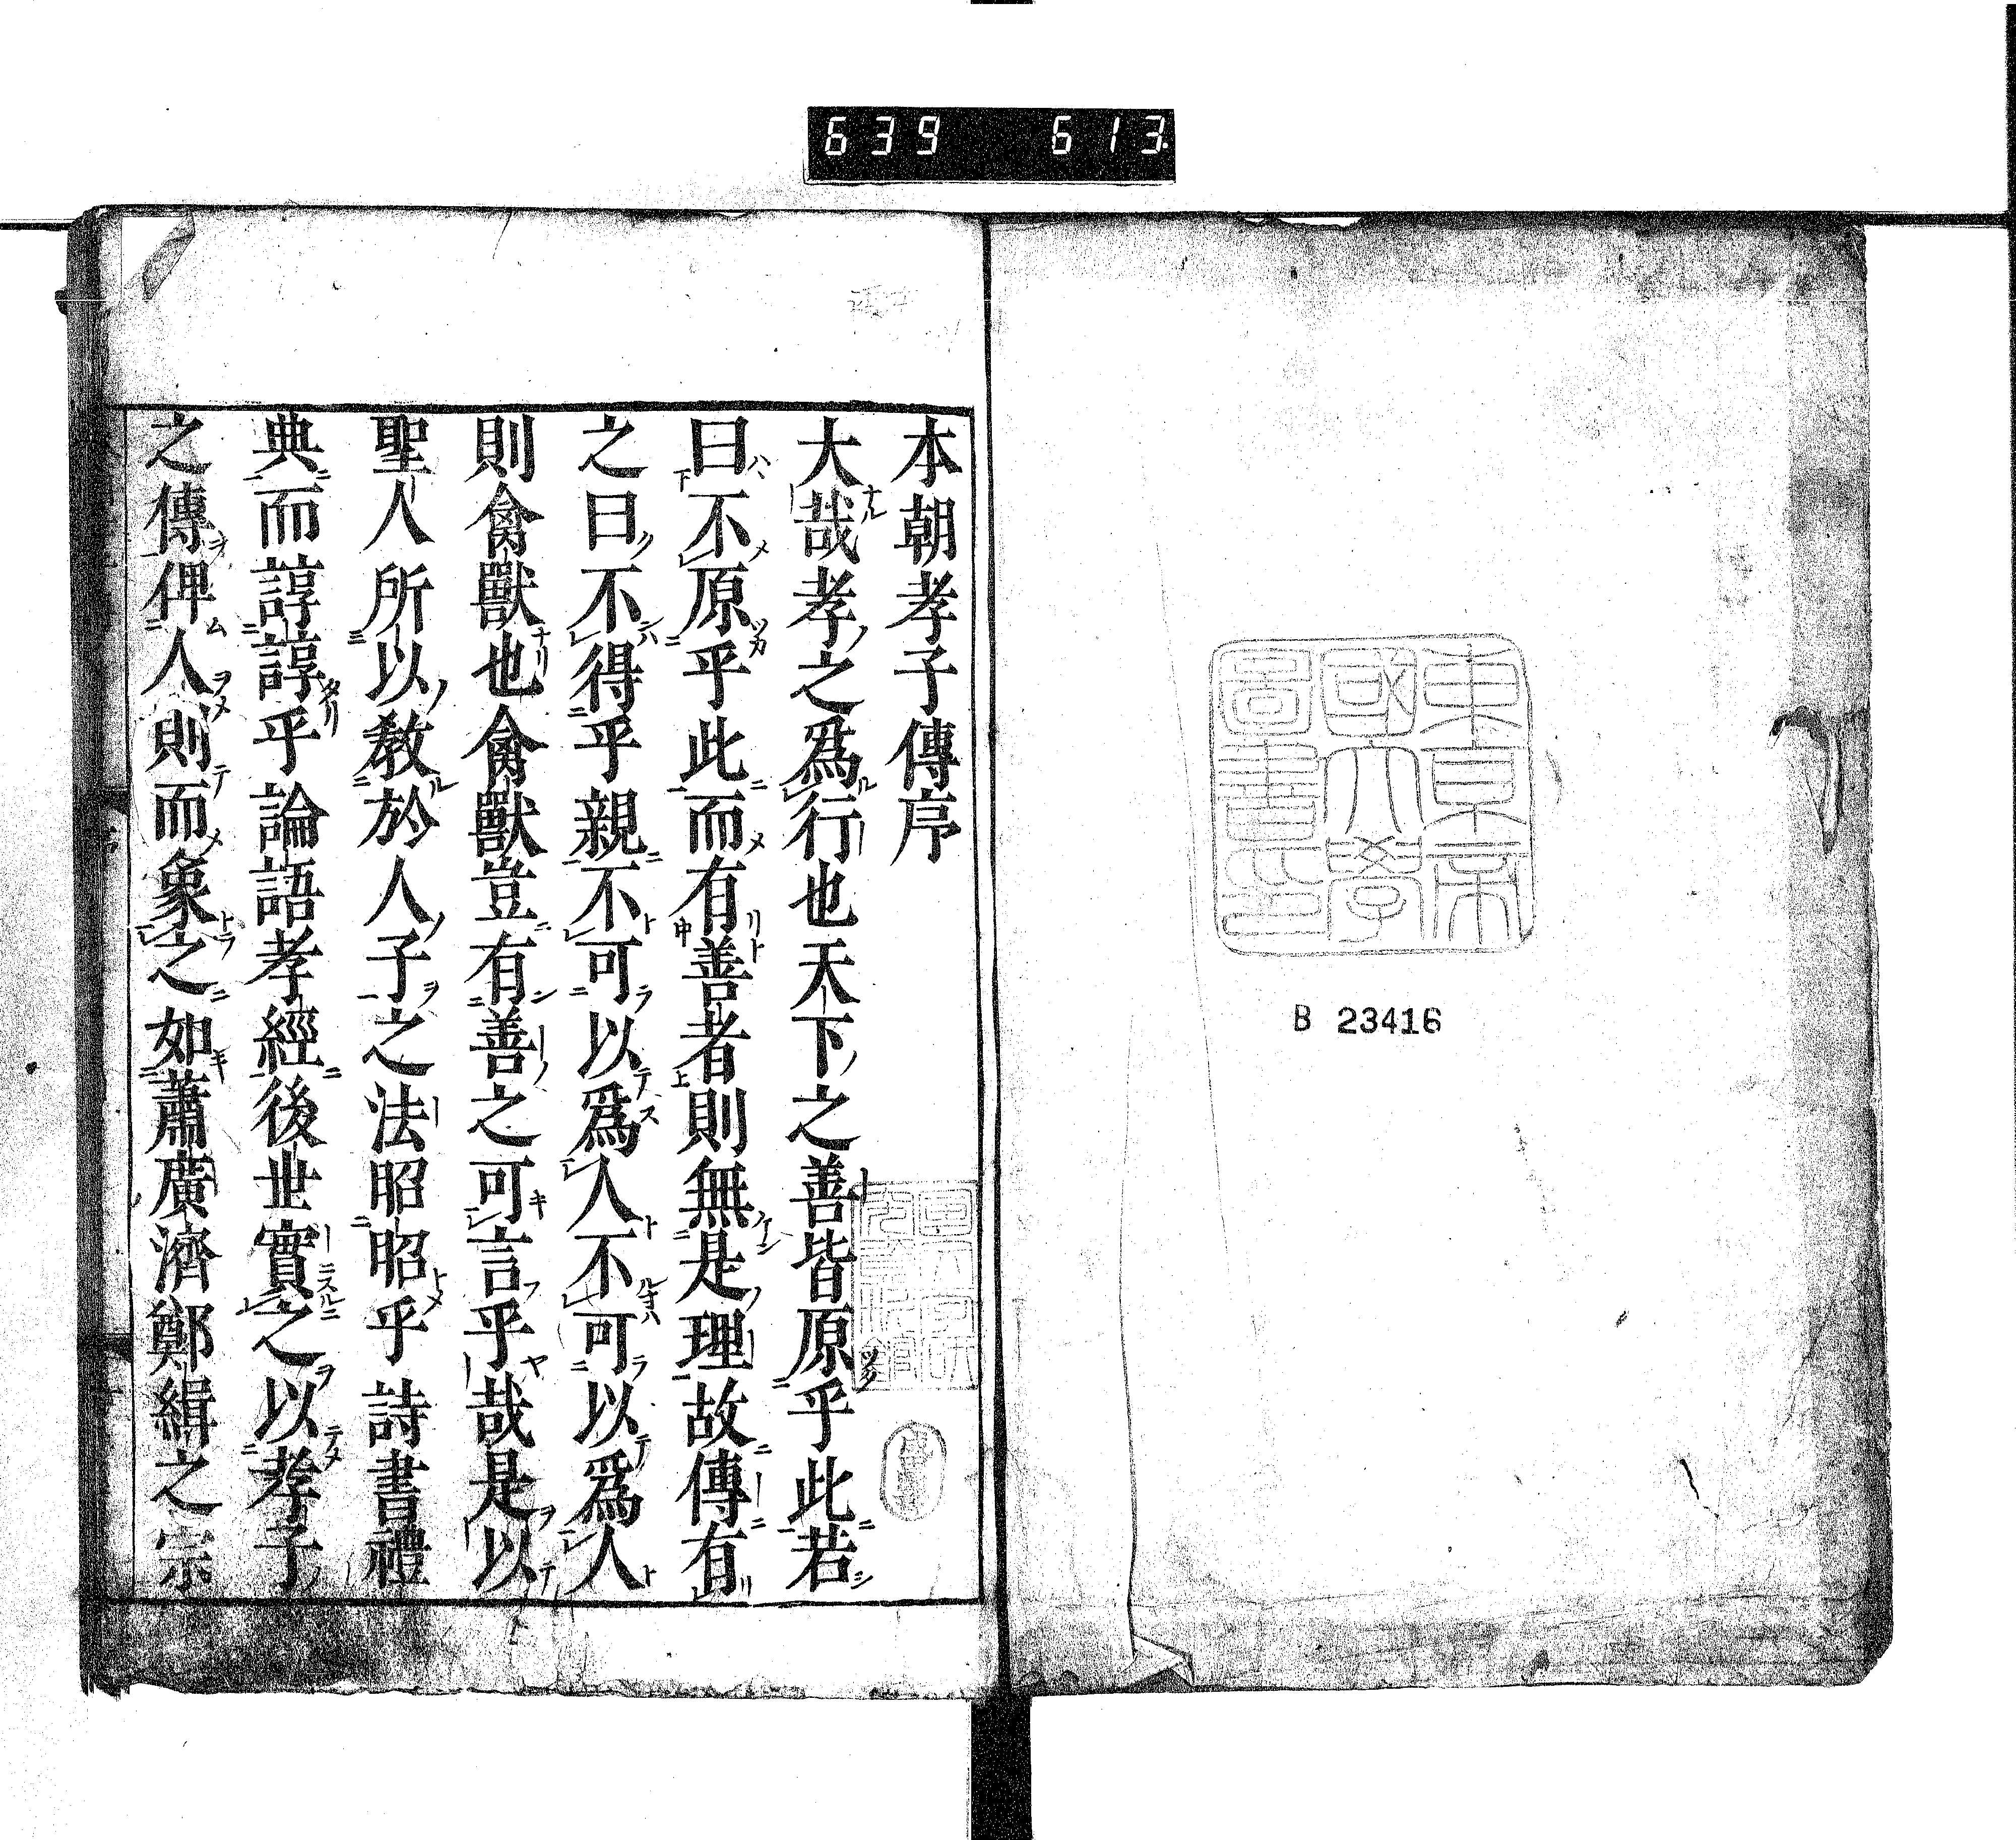 639 613
東京帝
國大學
圖書印
B 23416
本朝孝子傳序
大哉孝之爲行也天下之善皆原乎此若
曰不原乎此而有善者則無是理故傳有
之曰不得乎親不可以爲人不可以爲人
則禽獸也禽獸豈有善之可言乎哉是以
聖人所以教於人子之法昭昭乎詩書禮
典而諄諄乎論語孝經後世實之以孝子
之傳俾人則而象之如蕭廣濟鄭緝之宗